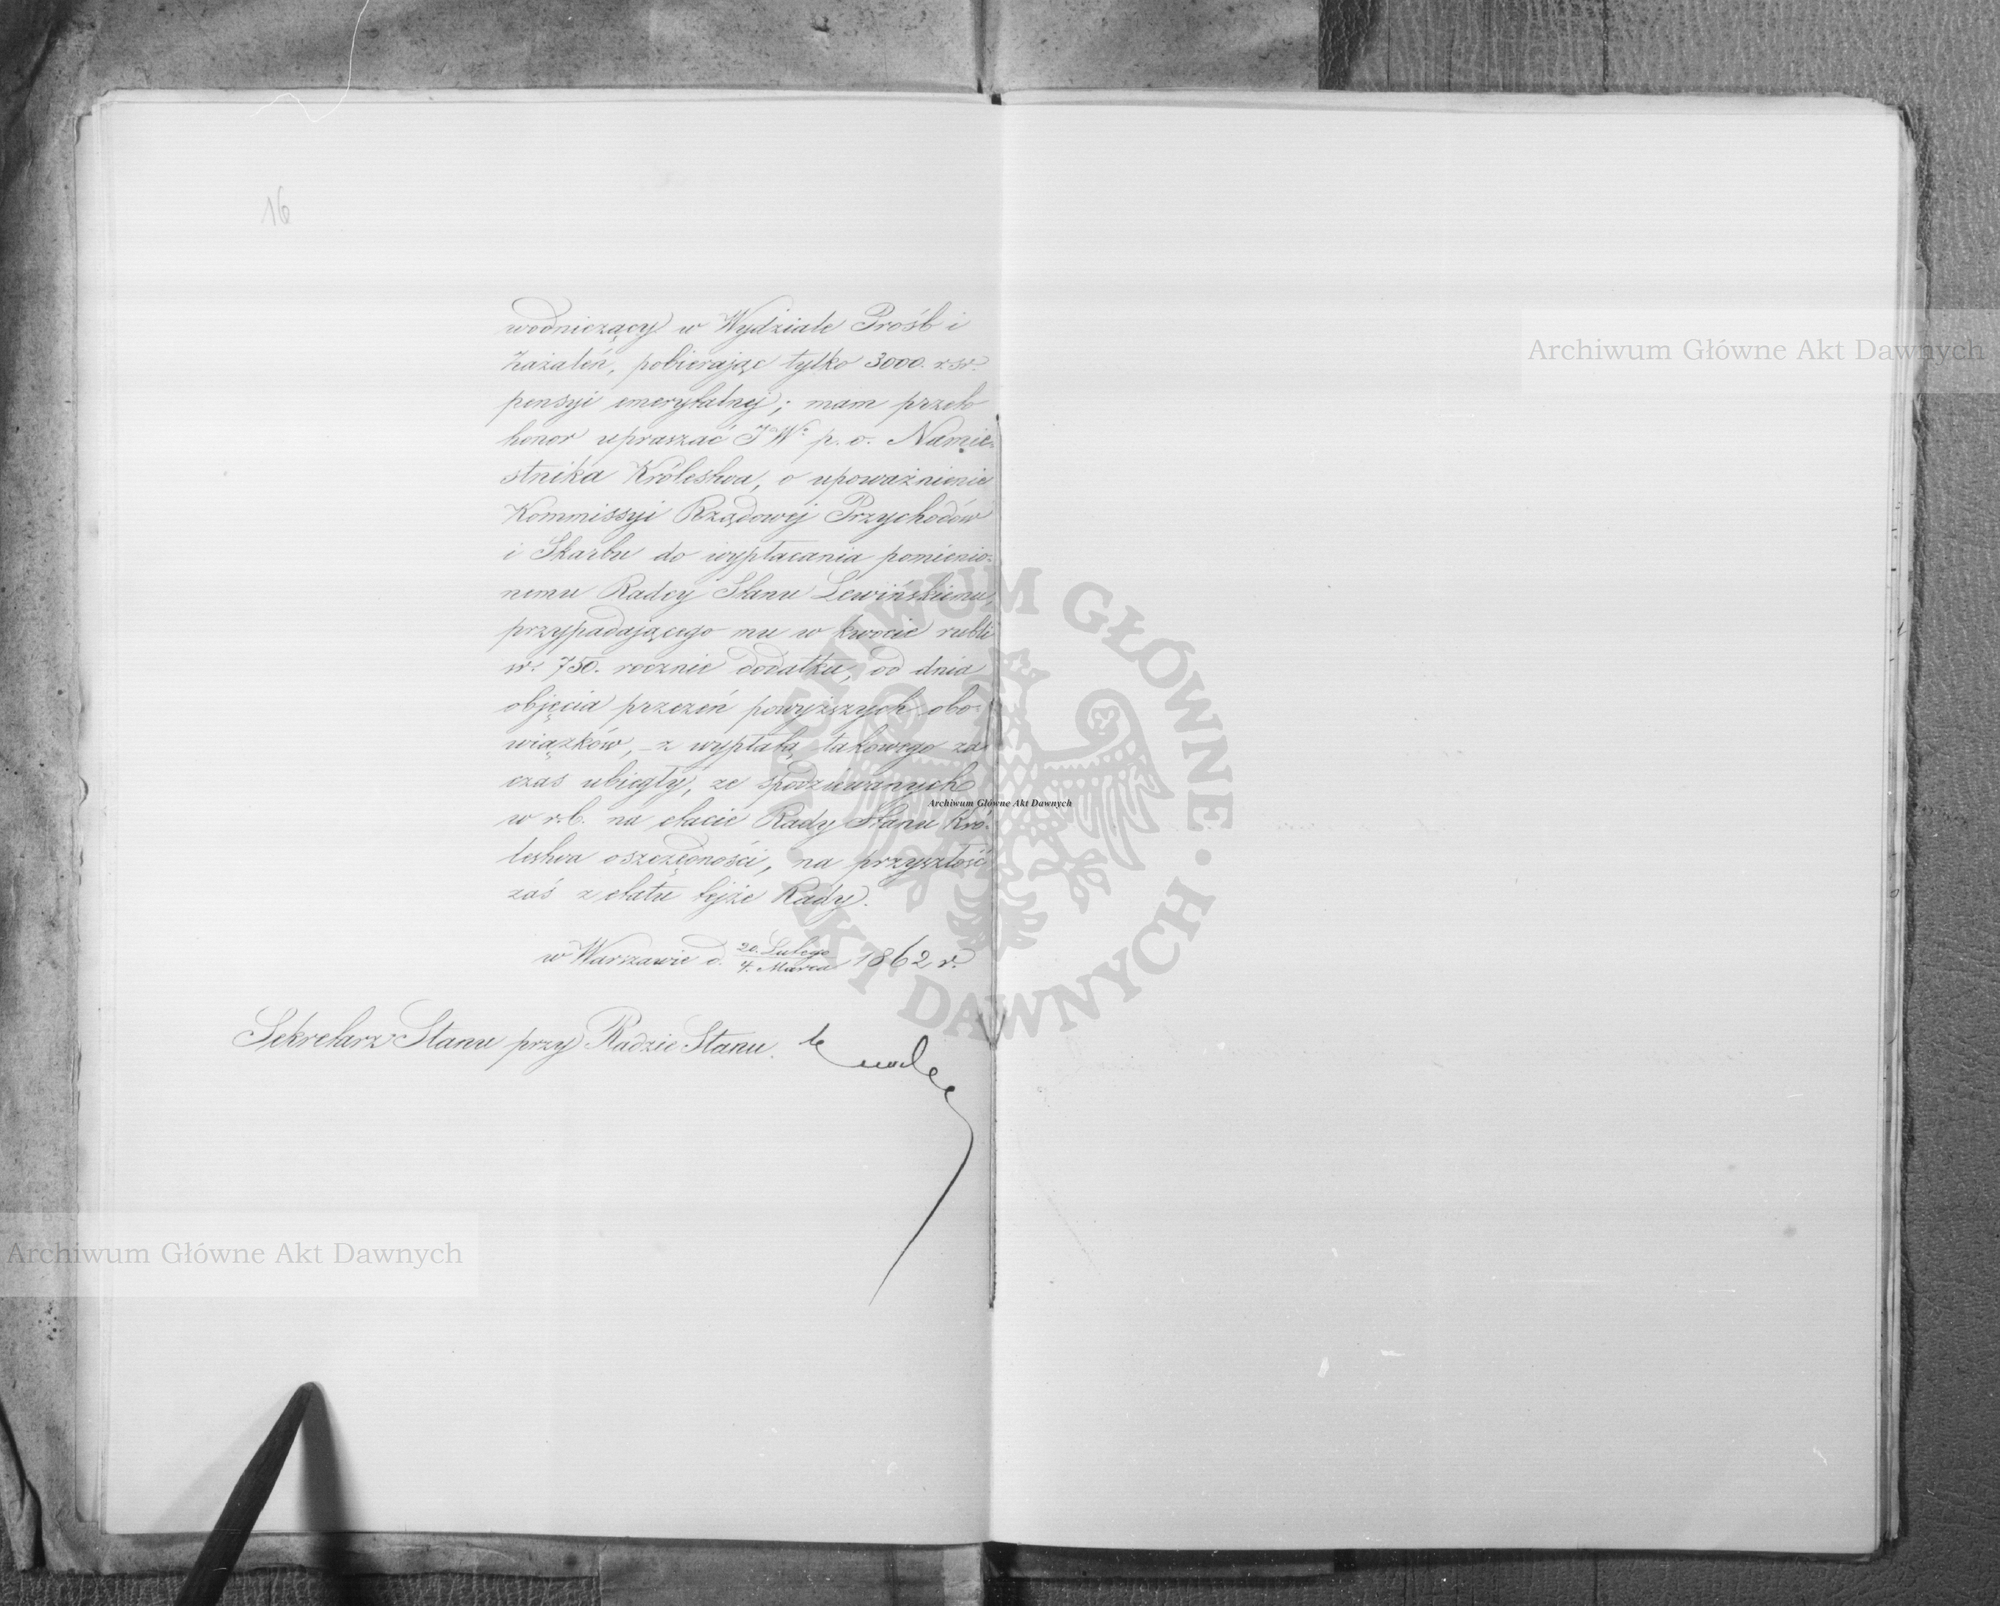 16
wodniczący w Wydziale Prośb i
Zażaleń, pobierając tylko 3000. rsr.
pensyi emerytalnej; mam przeto
honor upraszać JWo p. o. Namie-
stnika Królestwa, o upoważnienie
Kommissyi Rządowej Przychodów
i Skarbu do wypłacania pomienio-
nemu Radcy Stanu Lewińskiemu,
przypadającego mu w kwocie rubli
sr. 750. rocznie dodatku, od dnia
objęcia przezeń powyższych obo-
wiązków, z wypłatą takowego za
czas ubiegły, ze spodziewanych
w r. b. na etacie Rady Stanu Kró-
lestwa oszczędności, na przyszłość
zaś z etatu tejże Rady.
w Warszawie d. 20. Lutego / 4. Marca 1862 r.
Sekretarz Stanu przy Radzie Stanu.
Archiwum Główne Akt Dawnych
Archiwum Główne Akt Dawnych
Archiwum Główne Akt Dawnych
ARCHIWUM GŁÓWNE AKT DAWNYCH